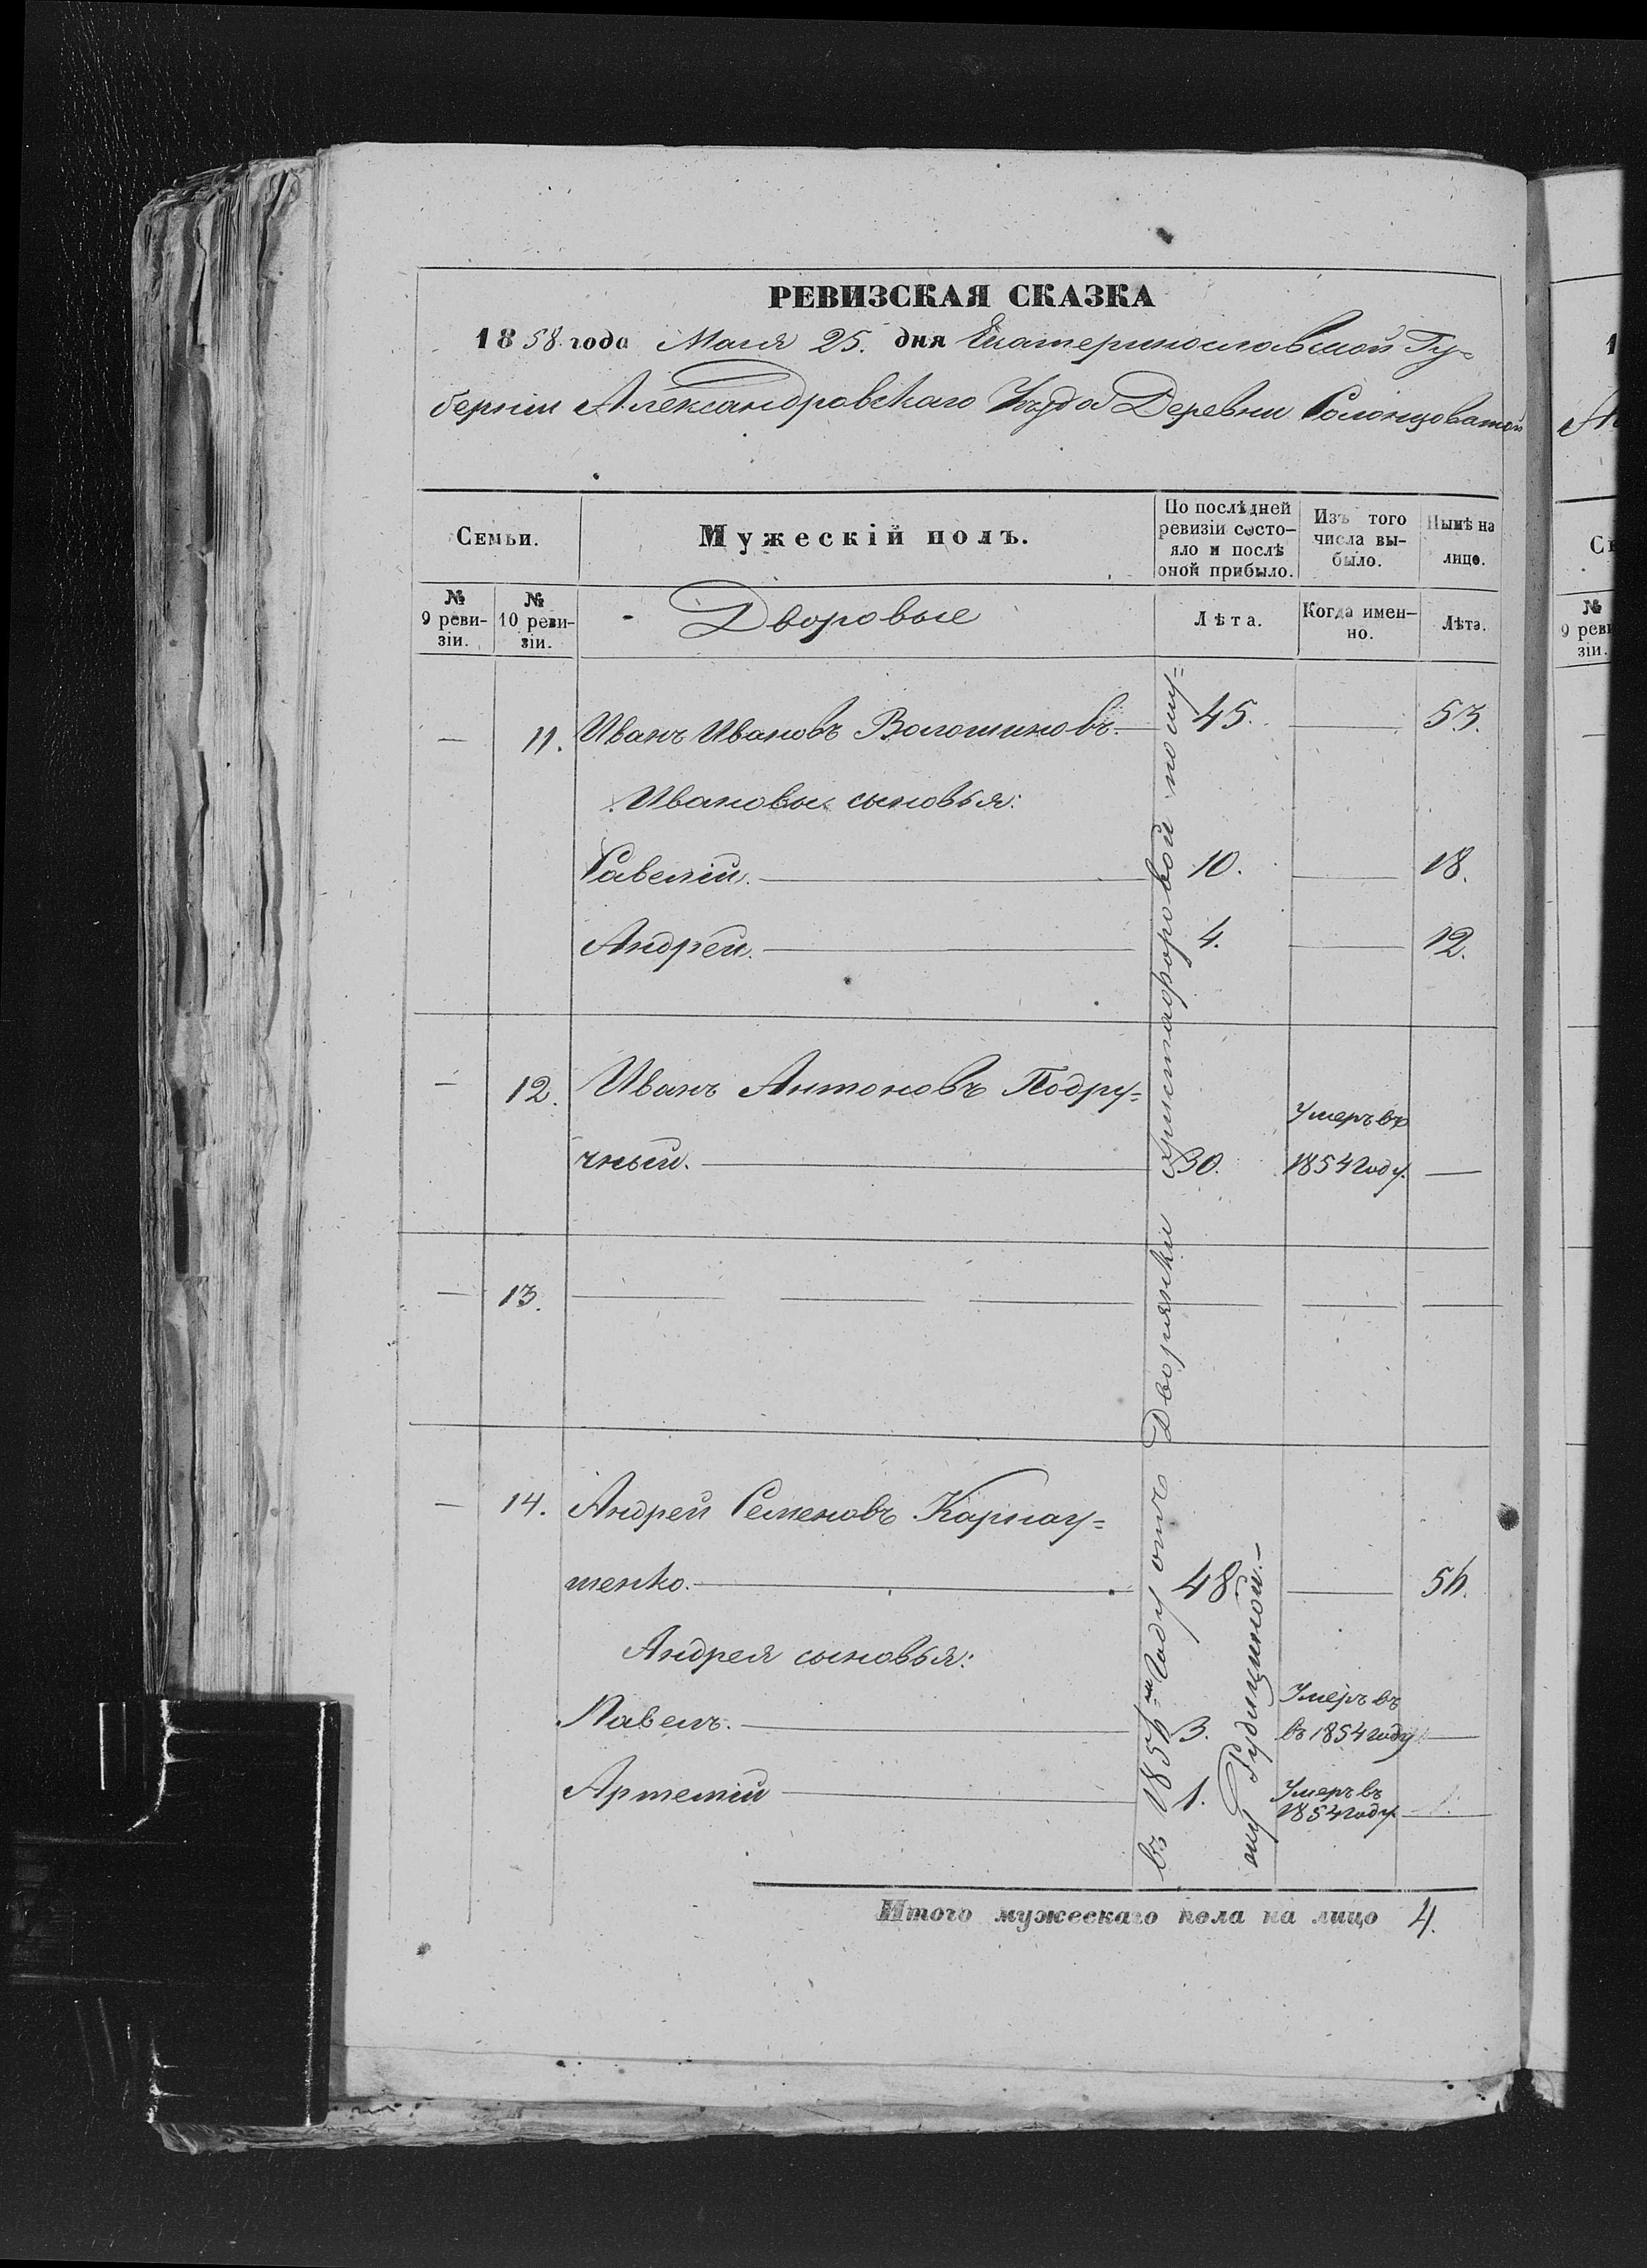 РЕВИЗСКАЯ СКАЗКА
1858. года Маия 25. дня Екатеринославской Гу=
берніи Александровскаго Уѣзда Деревни Солонцоватой
Семьи.
Мужескій полъ.
По послѣдней ревизіи состо-яло и послѣ оной прибыло.
Изъ того числа вы-было.
Нынѣ на лицо.
№ 9 реви-зіи.
№ 10 реви-зіи.
Дворовые
Лѣта.
Когда имен-но.
Лѣта.
11. Иванъ Ивановъ Волошиновъ. 45. 53.
Ивановы сыновья:
Савелій. 10. 18.
Андрей. 4. 12.
12. Иванъ Антоновъ Подру=
Умеръ въ
чный. 30. 1854 году.
13.
14. Андрей Семеновъ Карнау=
шенко. 48. 56.
Андрея сыновья:
Умеръ въ
Павелъ. 3. въ 1854 году
Артемій 1. Умеръ въ
1854 году
въ 1856м году отъ Дворянки Христафоровой по
Рудницыной.
Итого мужескаго пола на лицо 4.